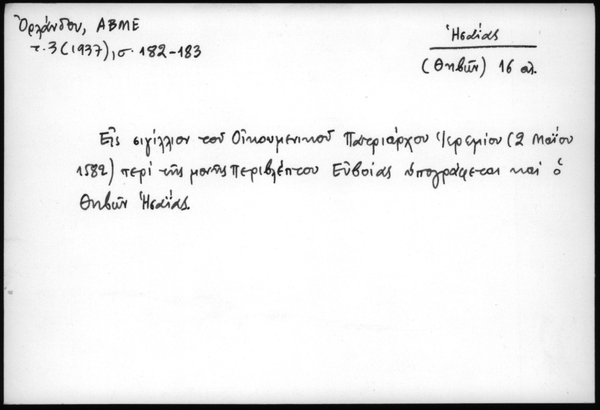 Ὀρλάνδου, ΑΒΜΕ
τ. 3 (1937), σ. 182-183
Ἠσαΐας
(Θηβῶν) 16 αἰ.
Εἰς σιγίλλιον τοῦ Οἰκουμενικοῦ Πατριάρχου Ἱερεμίου (2 Μαΐου
1582) περί τῆς μονῆς Περιβλέπτου Εὐβοίας ὑπογράφεται καί ὁ
Θηβῶν Ἠσαΐας.